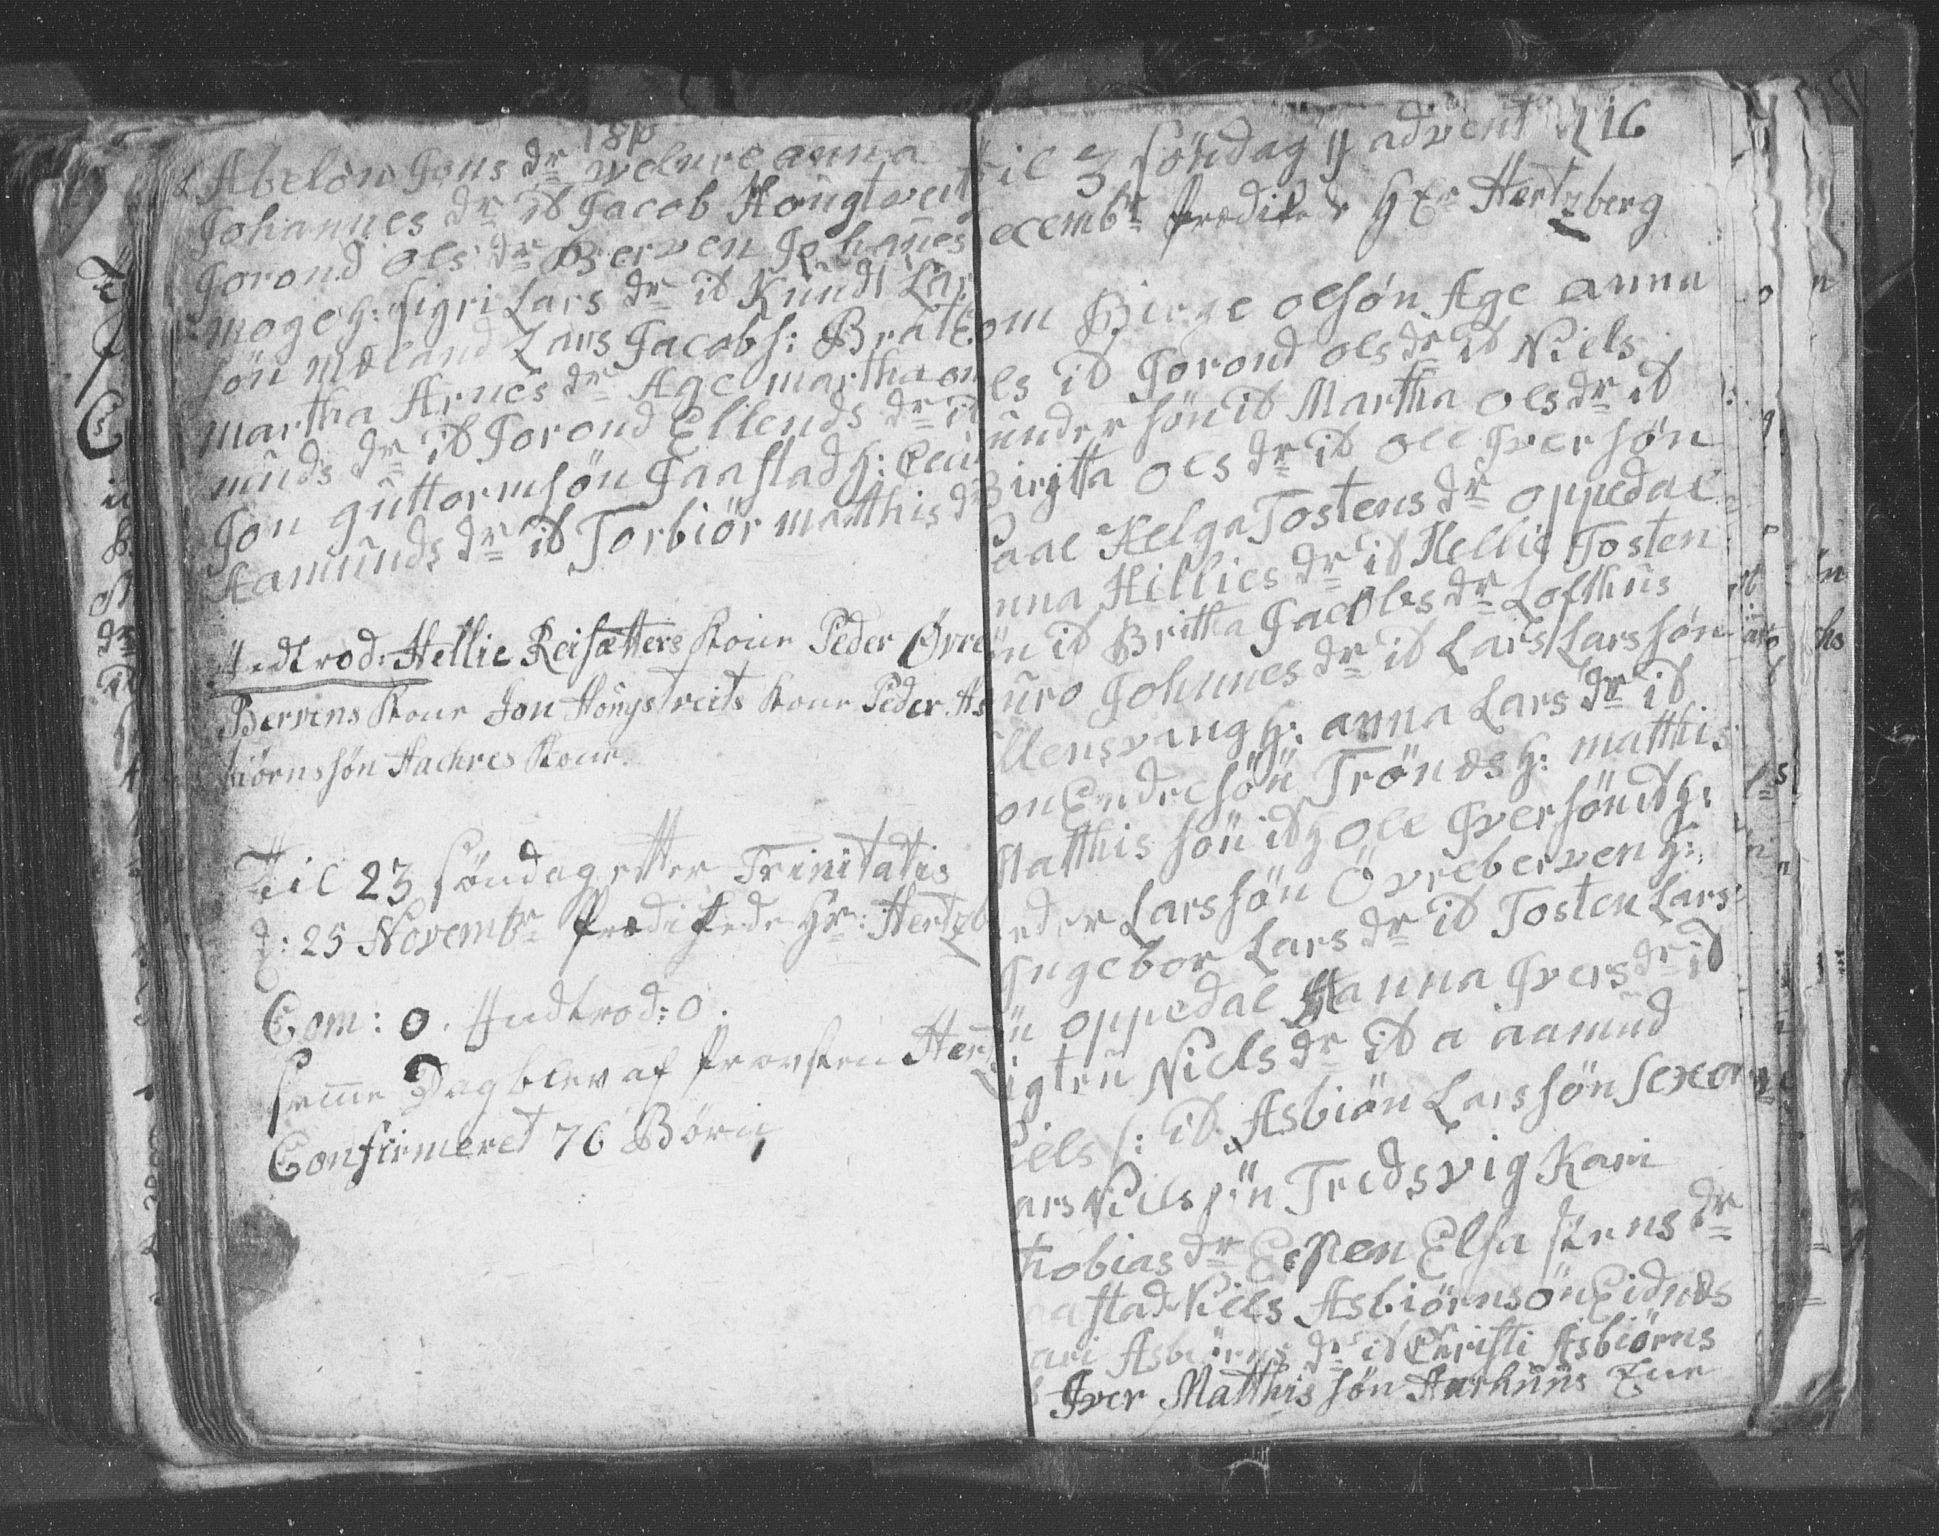 Abelon Jons dr welure anna
Johannes dr it Jacob Hougtveit
Jorond ols dr Berven Johanes
moge h: sigri Lars dr it Knudt Lar
søn Mæland Lars Jacobs: Bratte
martha Arnes dr Age martha om
unds dr it Jorond Ellends dr it
Jon guttormsøn Jaastad h:
Aamunds dr it Torbiør matthis dr
Indtrod: Hellie Reisætters Kone Peder Øvre
Bervens Kone Jon Hougstveits Kone Peder As
biørnssøn Hachres Kone
Til 23 søndag efter Trinitatis
d: 25 Novembr Prædikede Hr: Hertzb
Com: 0. Indtrod: 0.
samme Dag blev af Provsten Hertz
Confirmeret 76 Børn
til 3 søndag i advent d 16
ecembr Prædikede Hr Hertzberg
om Birge olsøn Age anna
ls it Jorond ols dr it Niels
under søn it Martha ols dr it
Biritta ols dr it ole Iversøn
aae Helga Tostens dr oppedal
nna Hillies dr it Hellie Tosten
øn it Britha Jacobs dr Lofthus
uro Johnnes dr it Lars Larssøn
llensvang h: anna Lars dr it
on Endresøn Trønæs h: matthis
Matthis søn it h ole Iversøn it h:
eder Larssøn Øvreberven h:
Ingebor Lars dr it Tosten Lars
n oppedal Hanna Ivers dr it
igten Niels dr it a aamund
iels s: it Asbiøn Larssøn sexe
ars Nielssøn Tredsvig Kari
thobias dr Espen Elsa stens dr
aastad Niels Asbiørnsøn Eidnæs
ari Asbiørns dr it Christi Asbiørns
Iver Matthis søn Aarhuus